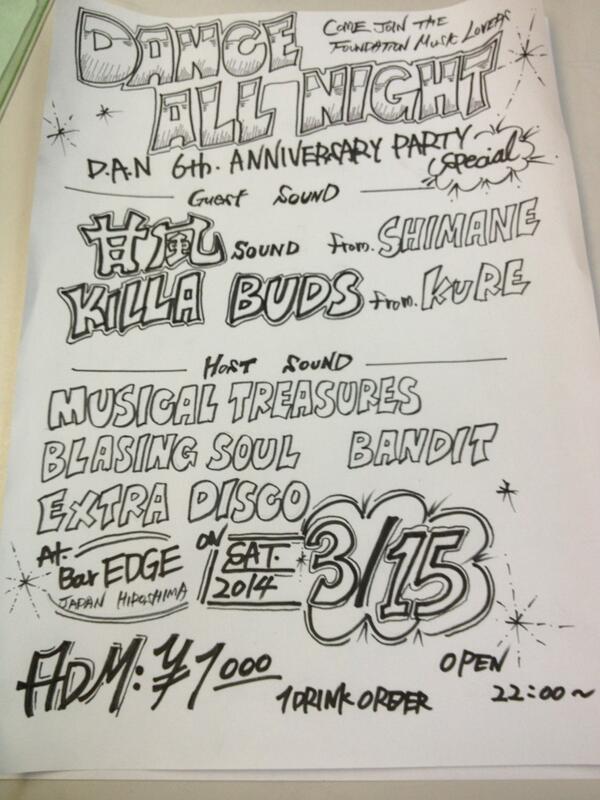 DANCE ALL NIGHT
COME JOIN THE
FOUNDATION MUSIC LOVERS
D.A.N 6th. ANNIVERSARY PARTY
Special
Guest SOUND
甘風 SOUND from. SHIMANE
KILLA BUDS from. KURE
HOST SOUND
MUSICAL TREASURES
BLASING SOUL BANDIT
EXTRA DISCO
At. Bar EDGE
JAPAN HIROSHIMA
ON SAT. 3/15
2014
ADM: ¥1000
1DRINK ORDER
OPEN
22:00~